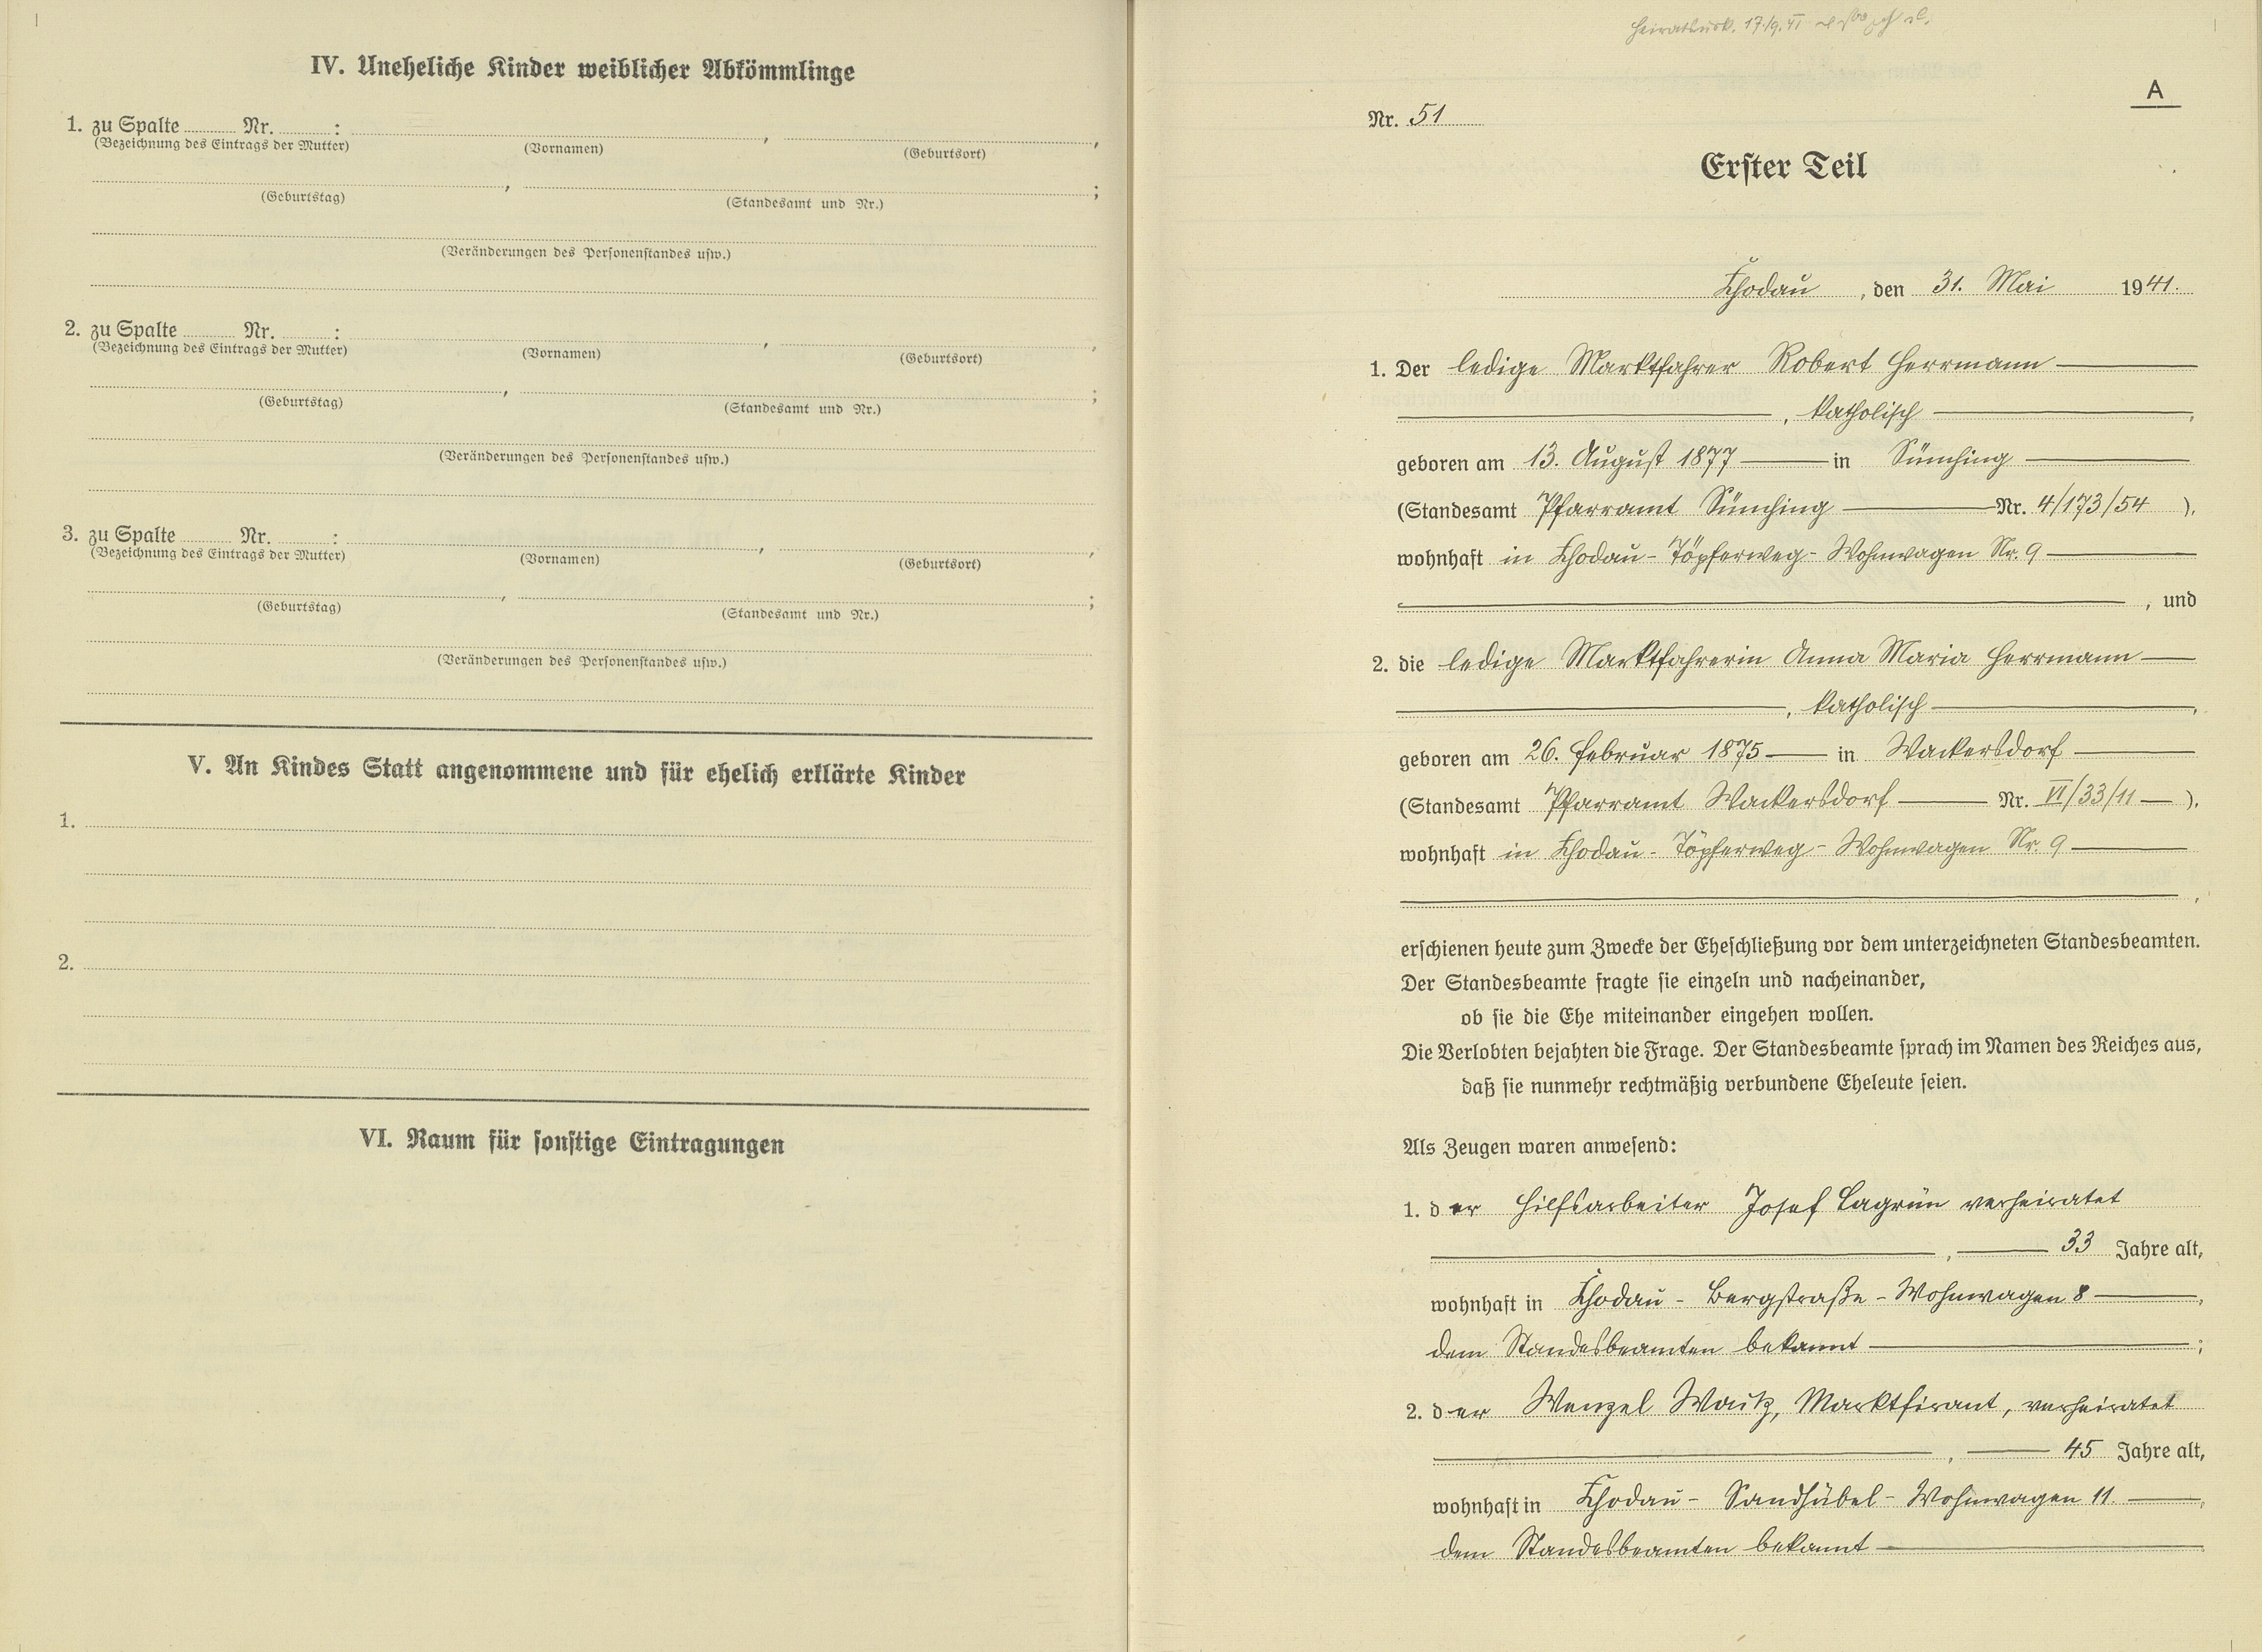 IV. Uneheliche Kinder weiblicher Abkömmlinge
1. zu Spalte Nr. : , ,
(Bezeichnung des Eintrags der Mutter) (Vornamen) (Geburtsort)
, ;
(Geburtstag) (Standesamt und Nr.)
(Veränderungen des Personenstandes usw.)
2. zu Spalte Nr. : , ,
(Bezeichnung des Eintrags der Mutter) (Vornamen) (Geburtsort)
, ;
(Geburtstag) (Standesamt und Nr.)
(Veränderungen des Personenstandes usw.)
3. zu Spalte Nr. : , ,
(Bezeichnung des Eintrags der Mutter) (Vornamen) (Geburtsort)
, ;
(Geburtstag) (Standesamt und Nr.)
(Veränderungen des Personenstandes usw.)
V. An Kindes Statt angenommene und für ehelich erklärte Kinder
1.
2.
VI. Raum für sonstige Eintragungen
Heiratsurk. 17/9. 41
A
Nr. 51
Erster Teil
Chodau, den 31. Mai 1941.
1. Der ledige Marktfahrer Robert Herrmann
, katholisch ,
geboren am 13. August 1877 in Sünching
(Standesamt Pfarramt Sünching Nr. 4/173/54 ),
wohnhaft in Chodau - Töpferweg - Wohnwagen Nr. 9
, und
2. die ledige Marktfahrerin Anna Maria Herrmann
, katholisch ,
geboren am 26. Februar 1875 in Wackersdorf
(Standesamt Pfarramt Wackersdorf Nr. VI/33/11 ),
wohnhaft in Chodau - Töpferweg - Wohnwagen Nr. 9
,
erschienen heute zum Zwecke der Eheschließung vor dem unterzeichneten Standesbeamten.
Der Standesbeamte fragte sie einzeln und nacheinander,
ob sie die Ehe miteinander eingehen wollen.
Die Verlobten bejahten die Frage. Der Standesbeamte sprach im Namen des Reiches aus,
daß sie nunmehr rechtmäßig verbundene Eheleute seien.
Als Zeugen waren anwesend:
1. der Hilfsarbeiter Josef Lagrün verheiratet
, 33 Jahre alt,
wohnhaft in Chodau - Bergstraße - Wohnwagen 8 ,
dem Standesbeamten bekannt ;
2. der Wenzel Waitz, Marktfirant, verheiratet
, 45 Jahre alt,
wohnhaft in Chodau - Sandhübel - Wohnwagen 11. ,
dem Standesbeamten bekannt